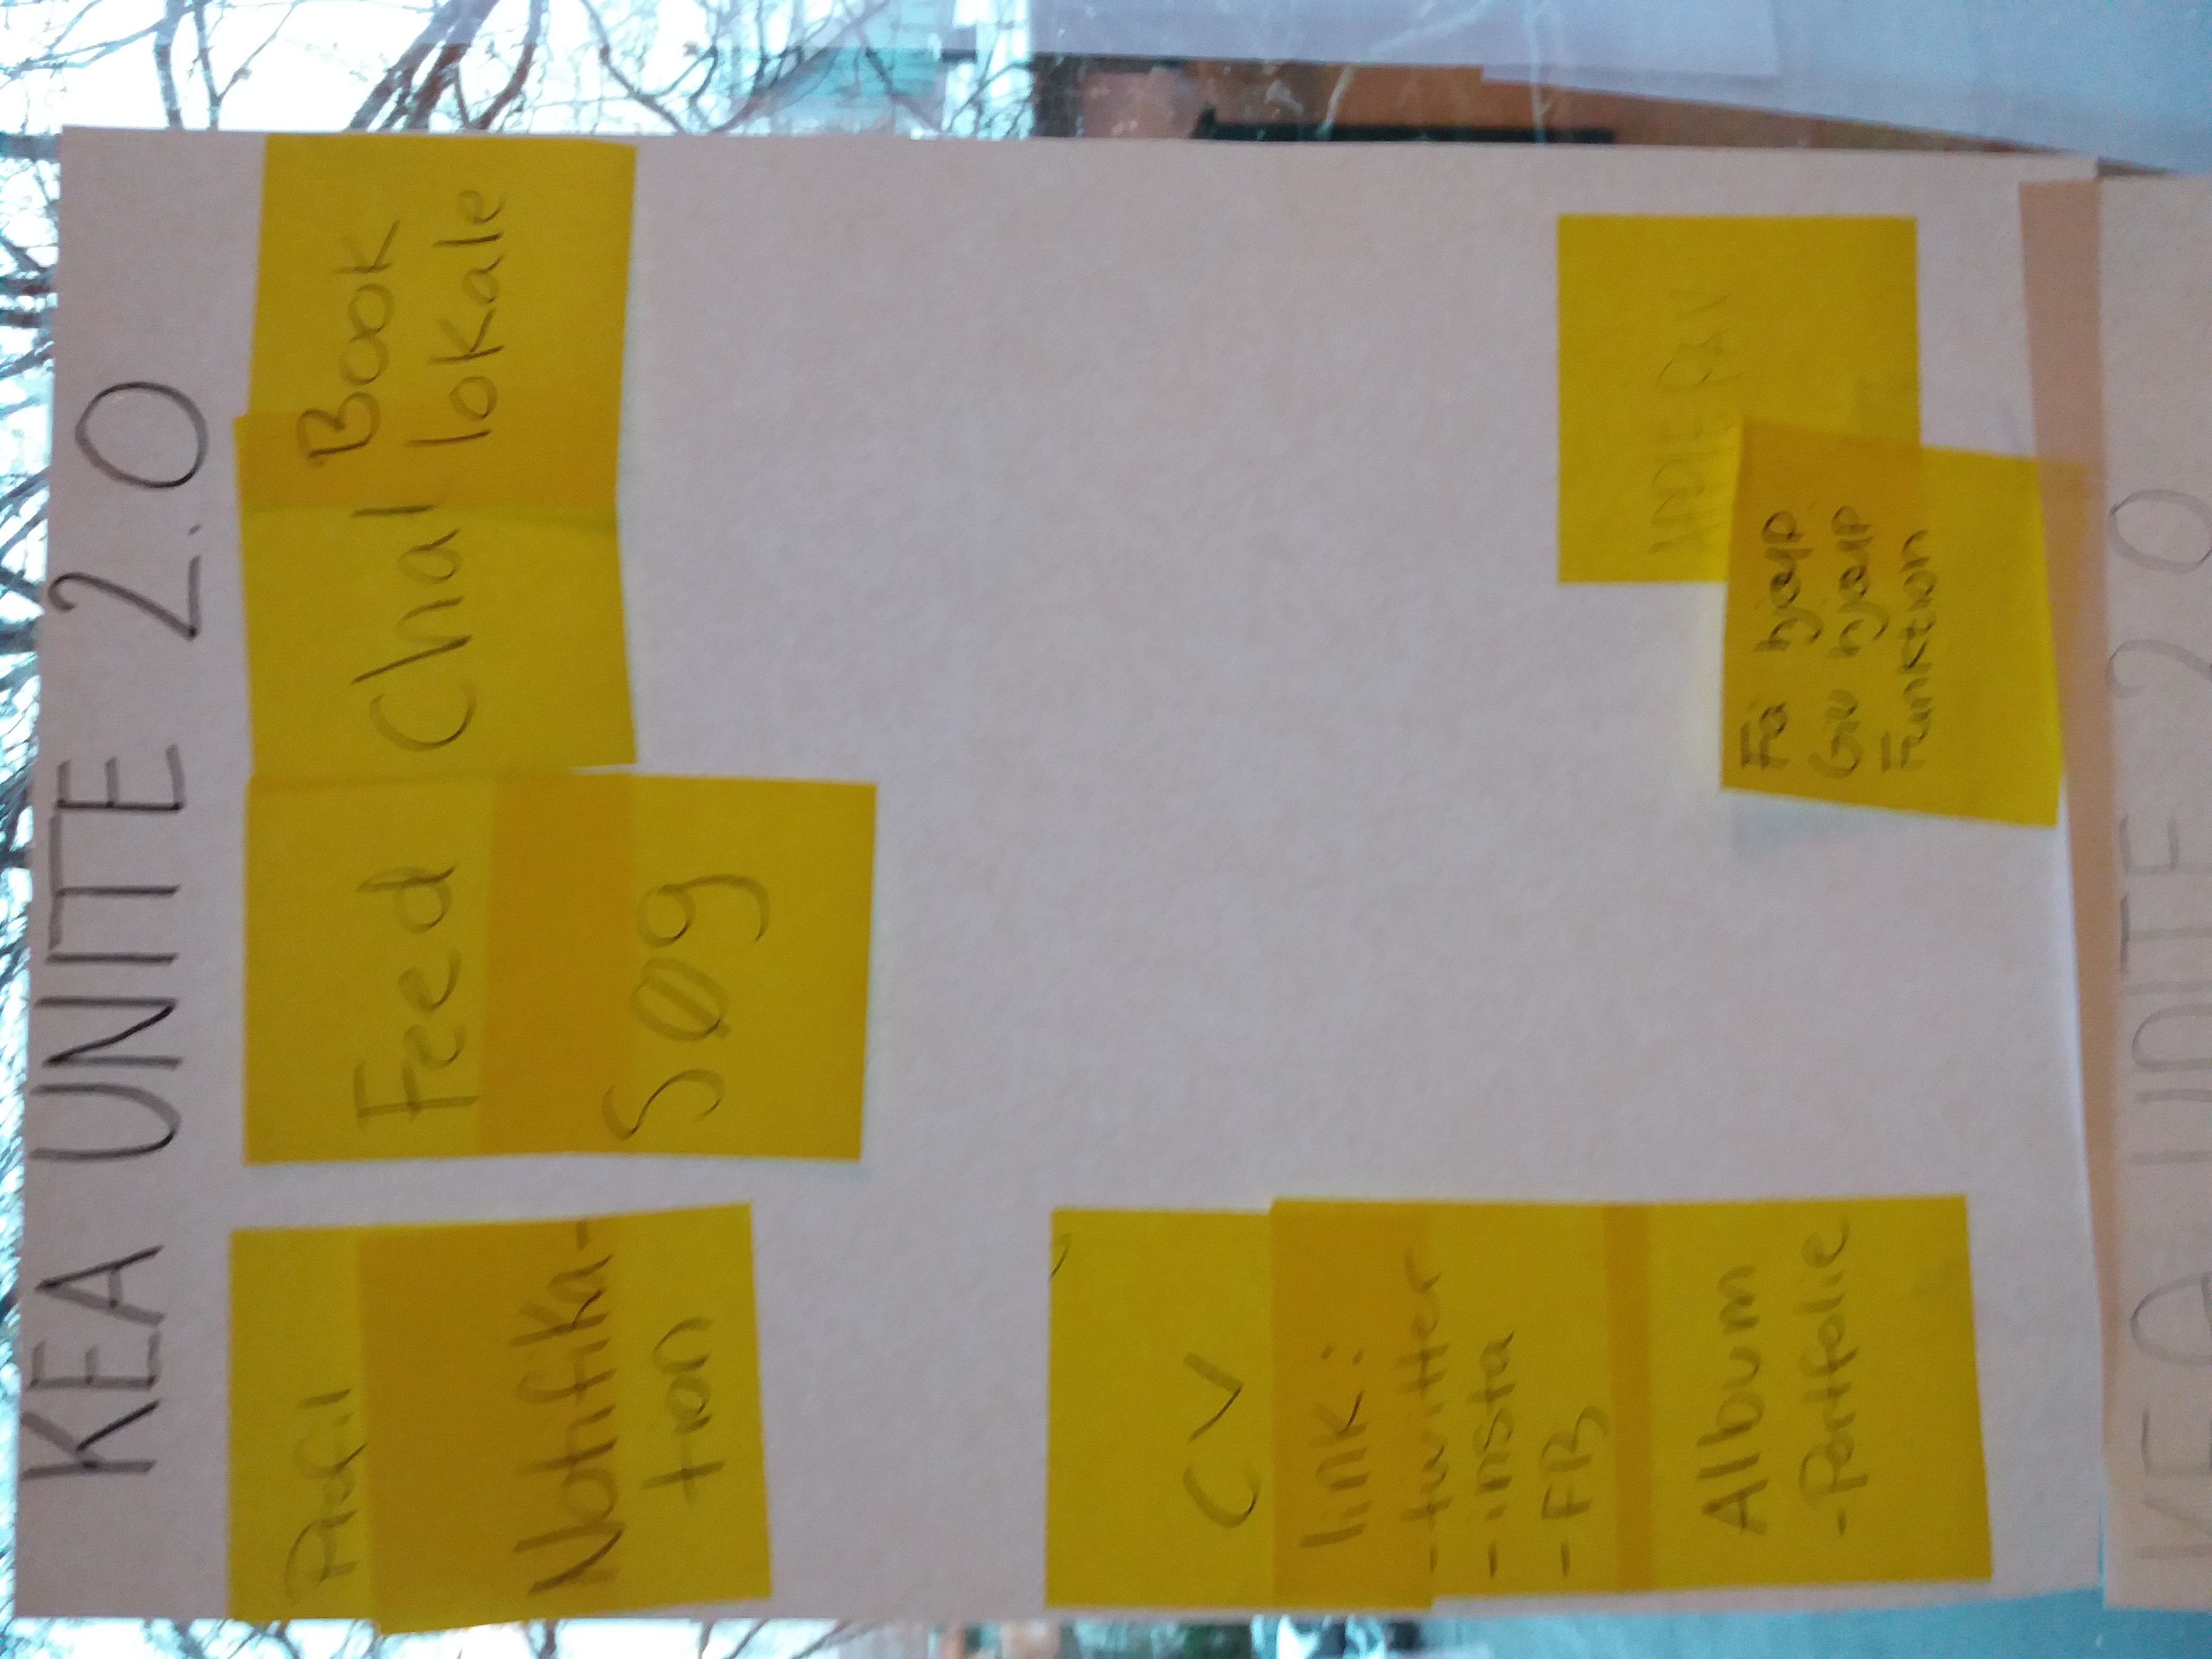 KEA UNITE 2.0
Profil
Notifika-
tion
Feed
Søg
Chat
Book
lokale
CV
link:
- twitter
- insta
- FB
Album
- Portfolie
APPLE PAY
Få hjælp
Giv hjælp
Funktion
KEA UNITE 2.0